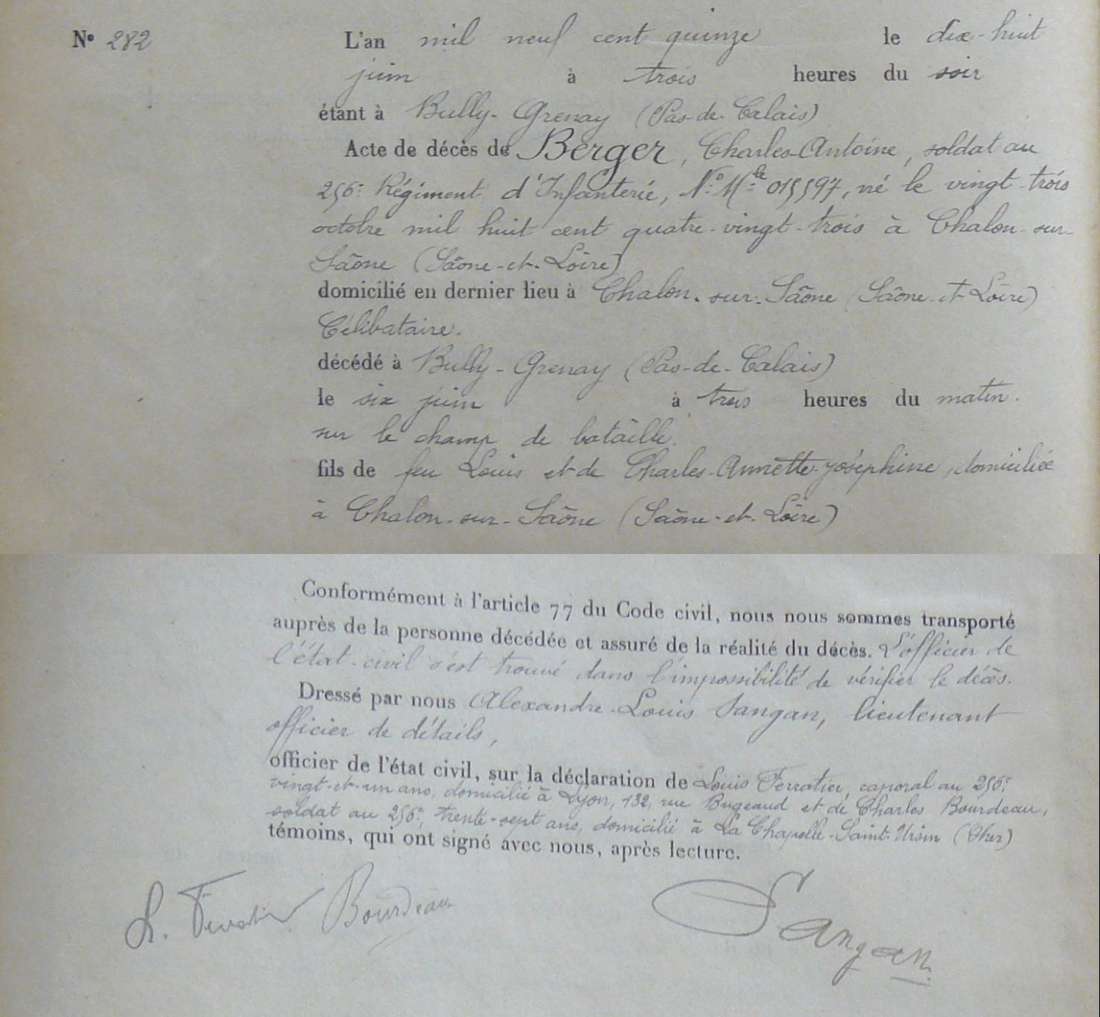 N° 282
L'an mil neuf cent quinze le dix-huit
juin à trois heures du soir
étant à Bully-Grenay (Pas-de-Calais)
Acte de décès de Berger, Charles-Antoine, soldat au
256e Régiment d'Infanterie, N° Mle 015597, né le vingt-trois
octobre mil huit cent quatre-vingt-trois à Chalon-sur-
Saône (Saône-et-Loire)
domicilié en dernier lieu à Chalon-sur-Saône (Saône-et-Loire)
Célibataire.
décédé à Bully-Grenay (Pas-de-Calais)
le six juin à trois heures du matin.
sur le champ de bataille.
fils de feu Louis et de Charles-Annette-Joséphine, domiciliée
à Chalon-sur-Saône (Saône-et-Loire)
Conformément à l'article 77 du Code civil, nous nous sommes transporté
auprès de la personne décédée et assuré de la réalité du décès. L'officier de
l'état-civil s'est trouvé dans l'impossibilité de vérifier le décès.
Dressé par nous Alexandre-Louis Sangan, lieutenant
officier de détails,
officier de l'état civil, sur la déclaration de Louis Ferratier, caporal au 256e
vingt-et-un ans, domicilié à Lyon, 132, rue Bugeaud et de Charles Bourdeau,
soldat au 256e, trente-sept ans, domicilié à La Chapelle-Saint-Ursin (Cher)
témoins, qui ont signé avec nous, après lecture.
L. Bourdeau Sangan